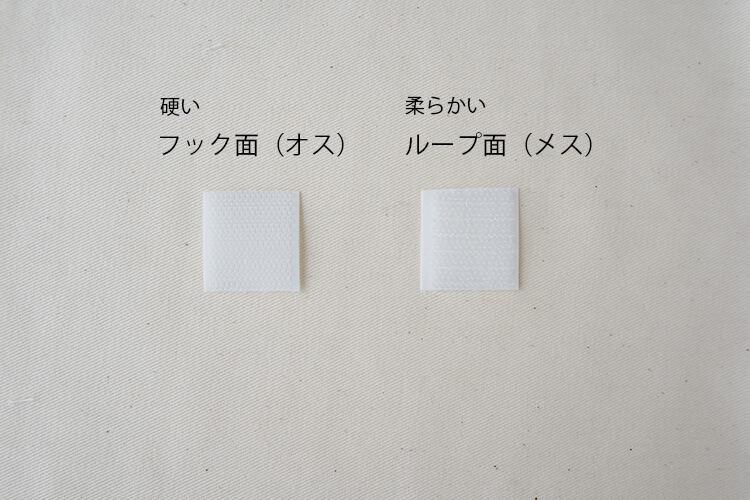 硬い
フック面（オス）
柔らかい
ループ面（メス）